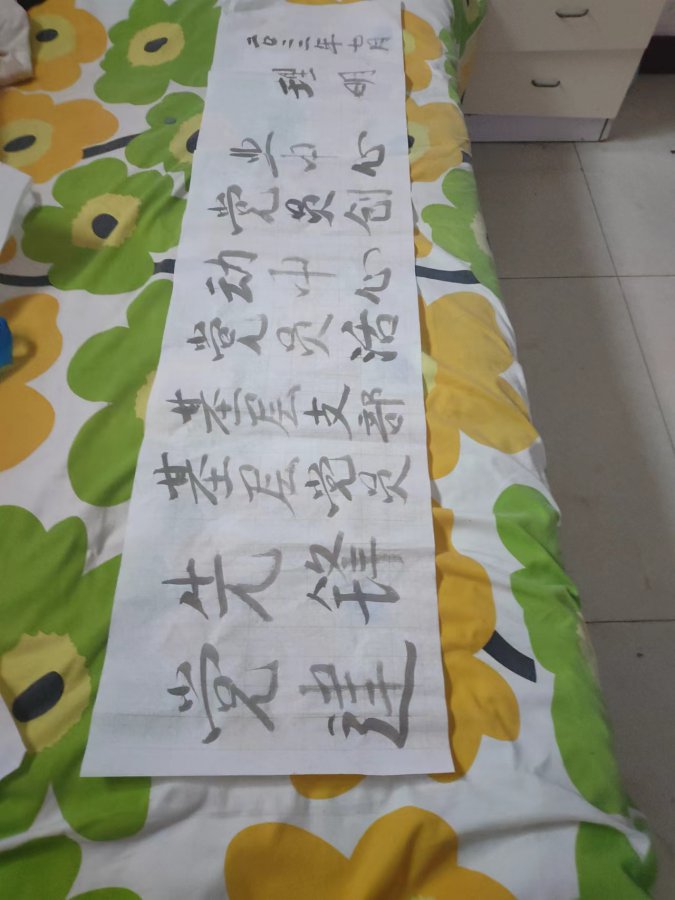 党建
先锋
基层党员
基层支部
党员活
动中心
党员创
业中心
理明
二〇二三年七月